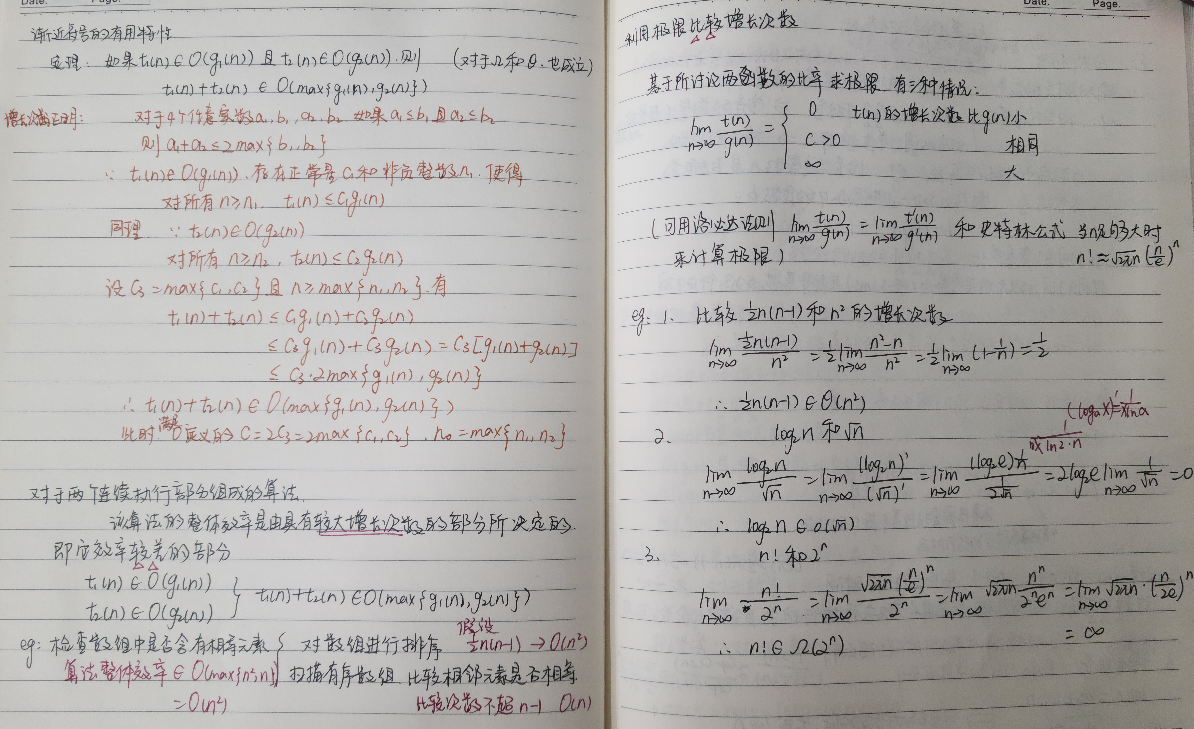 Date. Page.
渐近符号的有用特性
定理: 如果t₁(n)∈O(g₁(n)) 且 t₂(n)∈O(g₂(n)). 则 (对于Ω和Θ.也成立)
t₁(n)+t₂(n) ∈ O(max{g₁(n),g₂(n)})
证明: 对于4个任意实数a₁,b₁,a₂,b₂ 如果a₁≤b₁且a₂≤b₂
则 a₁+a₂≤2max{b₁,b₂}
∵ t₁(n)∈O(g₁(n)). 存在正常量c₁和非负整数n₁ 使得
对所有n≥n₁, t₁(n)≤c₁g₁(n)
同理 ∵ t₂(n)∈O(g₂(n))
对所有 n≥n₂, t₂(n)≤c₂g₂(n)
设 C₃=max{c₁,c₂}且 n≥max{n₁,n₂}.有
t₁(n)+t₂(n)≤c₁g₁(n)+c₂g₂(n)
≤C₃g₁(n)+C₃g₂(n)=C₃[g₁(n)+g₂(n)]
≤C₃·2max{g₁(n),g₂(n)}
∴ t₁(n)+t₂(n)∈O(max{g₁(n),g₂(n)})
此时 满足O定义的 C=2C₃=2max{c₁,c₂}, n₀=max{n₁,n₂}
对于两个连续执行部分组成的算法.
该算法的整体效率是由具有较大增长次数的部分所决定的.
即它效率较差的部分
t₁(n)∈O(g₁(n))
t₂(n)∈O(g₂(n)) } t₁(n)+t₂(n)∈O(max{g₁(n),g₂(n)})
eg: 检查数组中是否含有相等元素 { 对数组进行排序 假设 ½n(n-1) → O(n²)
算法整体效率∈O(max{n²,n}) 扫描有序数组 比较相邻元素是否相等
=O(n²) 比较次数不超n-1 O(n)
Date. Page.
利用极限比较增长次数
基于所讨论两函数的比率求极限 有三种情况:
lim n→∞ t(n)/g(n) = { 0 t(n)的增长次数比g(n)小
c>0 相同
∞ 大
(可用洛必达法则 lim n→∞ t(n)/g(n) = lim n→∞ t'(n)/g'(n) 和史特林公式 当n足够大时
来计算极限) n!≈√2πn (n/e)ⁿ
eg: 1. 比较 ½n(n-1)和n²的增长次数
lim n→∞ ½n(n-1)/n² = ½ lim n→∞ (n²-n)/n² = ½ lim n→∞ (1-1/n) = ½
∴ ½n(n-1)∈Θ(n²)
(logₐx)'=1/(xlna)
2. log₂n 和√n
lim n→∞ log₂n/√n = lim n→∞ (log₂n)'/(√n)' = lim n→∞ (log₂e)1/n / (1/2√n) = 2log₂e lim n→∞ 1/√n = 0
∴ log₂n ∈ o(√n)
3. n! 和 2ⁿ
lim n→∞ n!/2ⁿ = lim n→∞ √2πn (n/e)ⁿ/2ⁿ = lim n→∞ √2πn nⁿ/2ⁿeⁿ = lim n→∞ √2πn·(n/2e)ⁿ
= ∞
∴ n!∈Ω(2ⁿ)